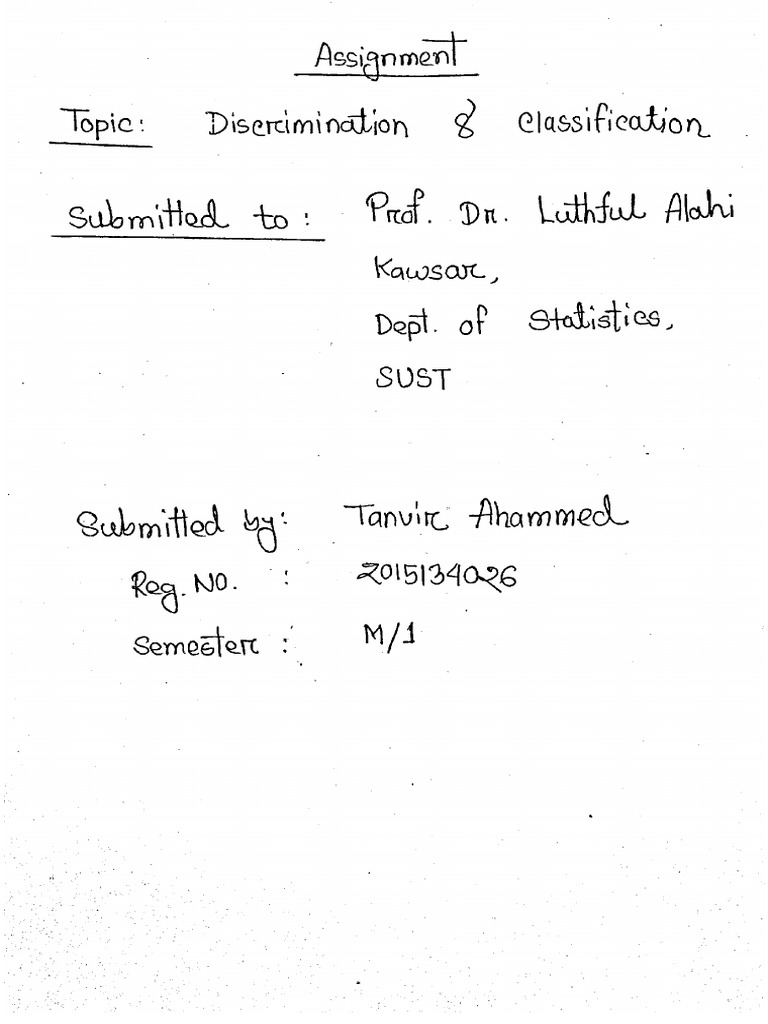 Assignment
Topic: Discrimination & Classification
Submitted to : Prof. Dr. Luthful Alahi
Kawsar,
Dept. of Statistics,
SUST
Submitted by: Tanvir Ahammed
Reg. NO. : 2015134026
Semester : M/1